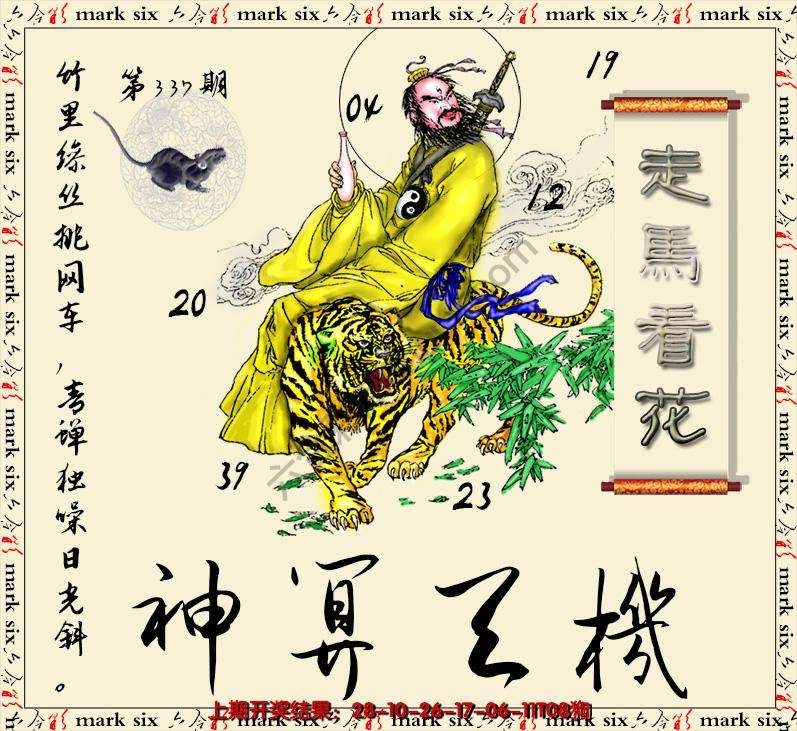 六合彩 mark six 六合彩 mark six 六合彩 mark six 六合彩 mark six 六合彩
第337期
竹里缲丝挑网车，青蝉独噪日光斜。
04
19
12
20
39
23
走馬看花
神算天機
上期开奖结果：28-10-26-17-06-11T08狗
六合彩 mark six 六合彩 mark six 六合彩 mark six 六合彩 mark six 六合彩